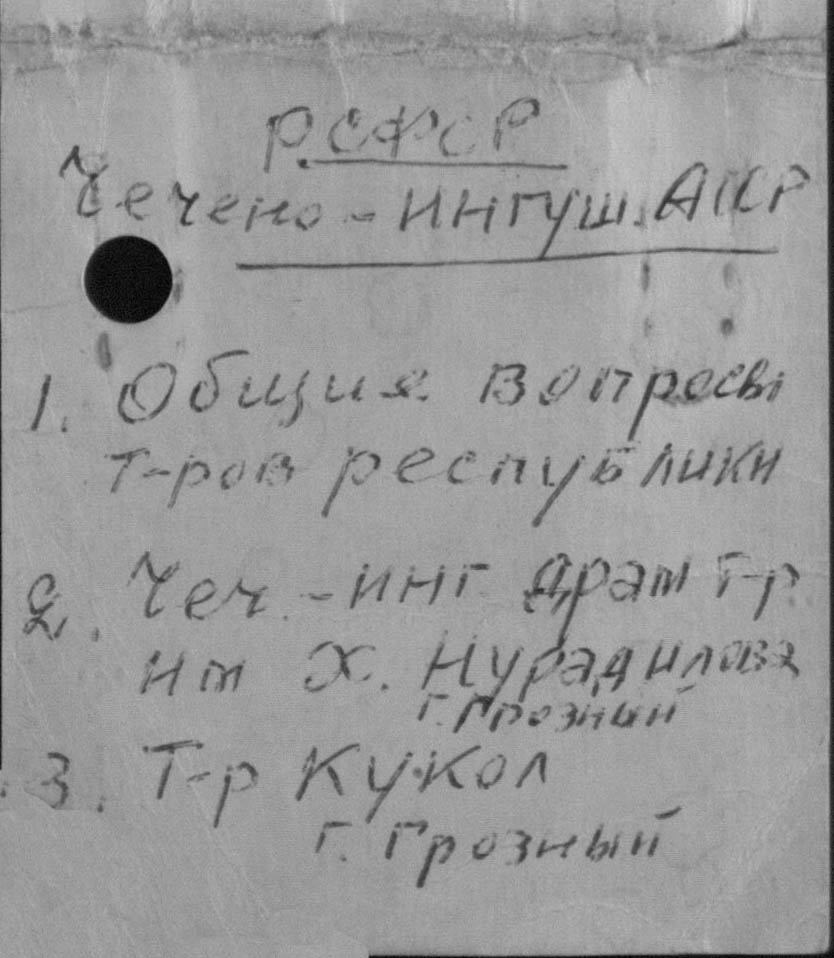 РСФСР
Чечено-ИНГУШ. АССР
1. Общие вопросы
т-ров республики
2. Чеч.-инг драм т-р
им Х. Нурадилова
г. Грозный
3. Т-р Кукол
г. Грозный